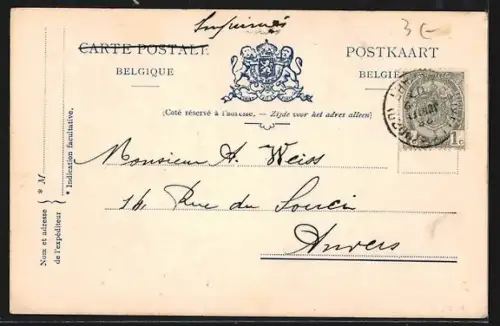 Imprimés
3€
CARTE POSTALE
POSTKAART
BELGIQUE
BELGIË
(Coté réservé à l'adresse, — Zijde voor het adres alleen)
1c
Monsieur A. Weiss
16, Rue du Souci
Anvers
* M
* Indication facultative.
Nom et adresse
de l'expéditeur